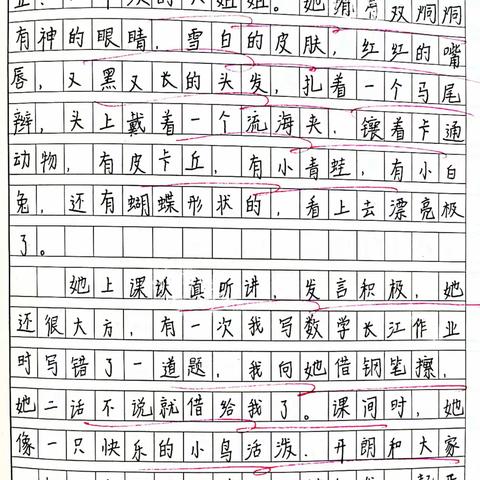 有神的眼晴，雪白的皮肤，红红的嘴
唇，又黑又长的头发，扎着一个马尾
辫，头上戴着一个流海夹，镶着卡通
动物，有皮卡丘，有小青蛙，有小白
兔，还有蝴蝶形状的，看上去漂亮极
了。
她上课认真听讲，发言积极，她
还很大方，有一次我写数学长江作业
时写错了一道题，我向她借钢笔擦，
她二话不说就借给我了。课间时，她
像一只快乐的小鸟活泼、开朗和大家